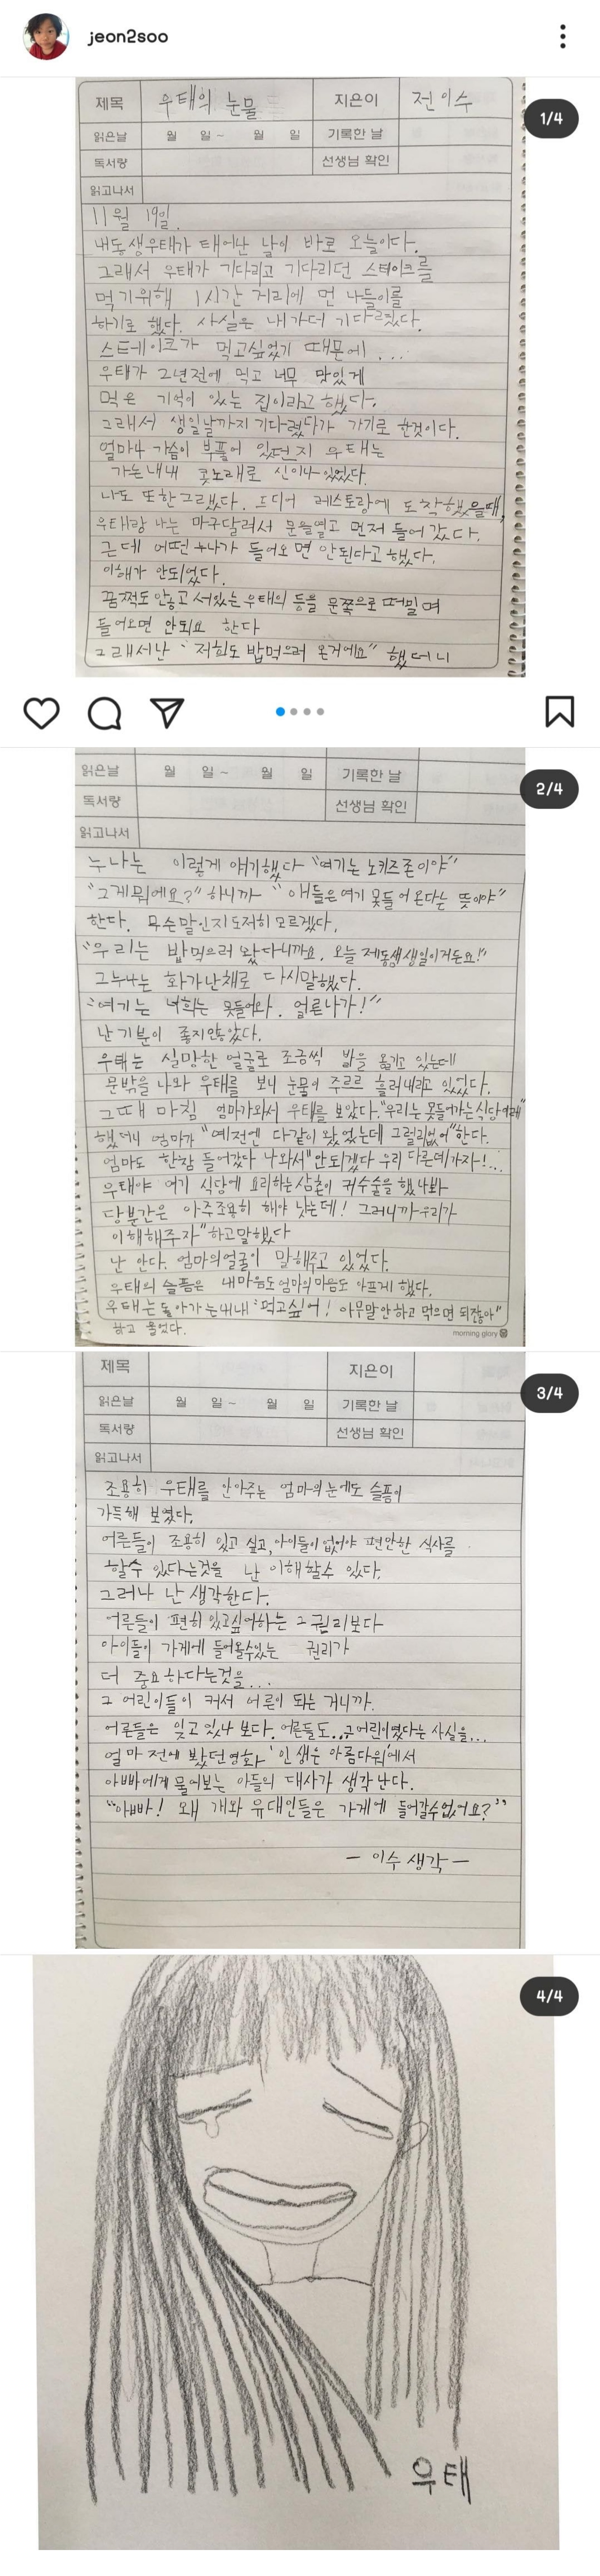 jeon2soo
1/4
제목 우태의 눈물 지은이 전이수
읽은날 월 일~ 월 일 기록한 날
독서량 선생님 확인
읽고나서
11월 19일.
내동생우태가 태어난 날이 바로 오늘이다.
그래서 우태가 기다리고 기다리던 스테이크를
먹기위해 1시간 거리에 먼 나들이를
하기로 했다. 사실은 내가더 기다렸다.
스트레이크가 먹고싶었기 때문에 ....
우태가 2년전에 먹고 너무 맛있게
먹은 기억이 있는 집이라고 했다.
그래서 생일날까지기다렸다가 가기로 한것이다.
얼마나 가슴이 부풀어 있던지 우태는
가는내내 콧노래로 신이나있었다.
나도 또한그랬다. 드디어 레스토랑에 도착했을때,
우태랑 나는 마구달려서 문을열고 먼저 들어갔다.
근데 어떤 누나가 들어오면 안된다고 했다.
이해가 안되었다.
꿈쩍도 안하고 서있는 우태의 등을 문쪽으로 떠밀며
들어오면 안돼요 한다
그래서난 "저희도 밥먹으러 온거에요" 했더니
2/4
읽은날 월 일~ 월 일 기록한 날
독서량 선생님 확인
읽고나서
누나는 이렇게 얘기했다 "여기는 노키즈존이야"
"그게뭐에요?" 하니까 "애들은여기 못들어온다는 뜻이야"
한다. 무슨말인지도저히 모르겠다.
"우리는 밥먹으러 왔다니까요. 오늘 제동생생일이거든요!"
그누나는 화가난채로 다시말했다.
"여기는 너희는 못들어와. 얼른나가!"
난 기분이 좋지않았다.
우태는 실망한 얼굴로 조금씩 발을 옮기고 있는데
문밖을 나와 우태를 보니 눈물이 주르르 흘러내리고 있었다.
그때 마침 엄마가와서 우태를 보았다."우리는못들어가는식당이래"
했더니 엄마가 "예전엔 다같이 왔었는데 그럴리없어"한다.
엄마도 한참 들어갔다 나와서"안되겠다 우리 다른데가자!...
우태야 여기 식당에 요리하는삼촌이 귀수술을 했나봐
당분간은 아주조용히 해야 낫는데! 그러니까우리가
이해해주자"하고말했다
난 안다. 엄마의얼굴이 말해주고 있었다.
우태의 슬픔은 내마음도엄마의마음도 아프게 했다.
우태는돌아가는내내"먹고싶어! 아무말안하고 먹으면 되잖아"
하고 울었다.
morning glory
3/4
제목 지은이
읽은날 월 일~ 월 일 기록한 날
독서량 선생님 확인
읽고나서
조용히 우태를 안아주는 엄마의눈에도 슬픔이
가득해 보였다.
어른들이 조용히 있고 싶고,아이들이없어야 편안한 식사를
할수 있다는것을 난 이해할수 있다.
그러나 난 생각한다.
어른들이 편히있고싶어하는 그권리보다
아이들이 가게에 들어올수있는 권리가
더 중요하다는것을...
그 어린이들이 커서 어른이 되는 거니까.
어른들은 잊고있나 보다. 어른들도..그어린이였다는 사실을...
얼마 전에 봤던영화 '인생은 아름다워'에서
아빠에게 물어보는 아들의 대사가 생각난다.
"아빠! 왜 개와 유대인들은 가게에 들어갈수없어요?"
- 이수 생각 -
4/4
우태